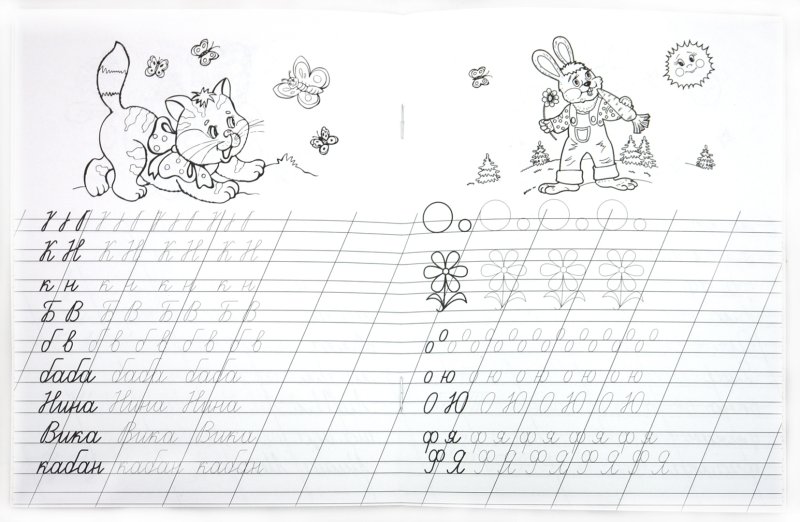 К Н К Н К Н К Н
к н к н к н к н
Б В Б В Б В Б В
б в б в б в б в б в
баба баба баба
Нина Нина Нина
Вика Вика Вика
кабан кабан кабан
о ю о ю о ю о ю о ю
О Ю О Ю О Ю О Ю
ф я ф я ф я ф я ф я
Ф Я Ф Я Ф Я Ф Я Ф Я